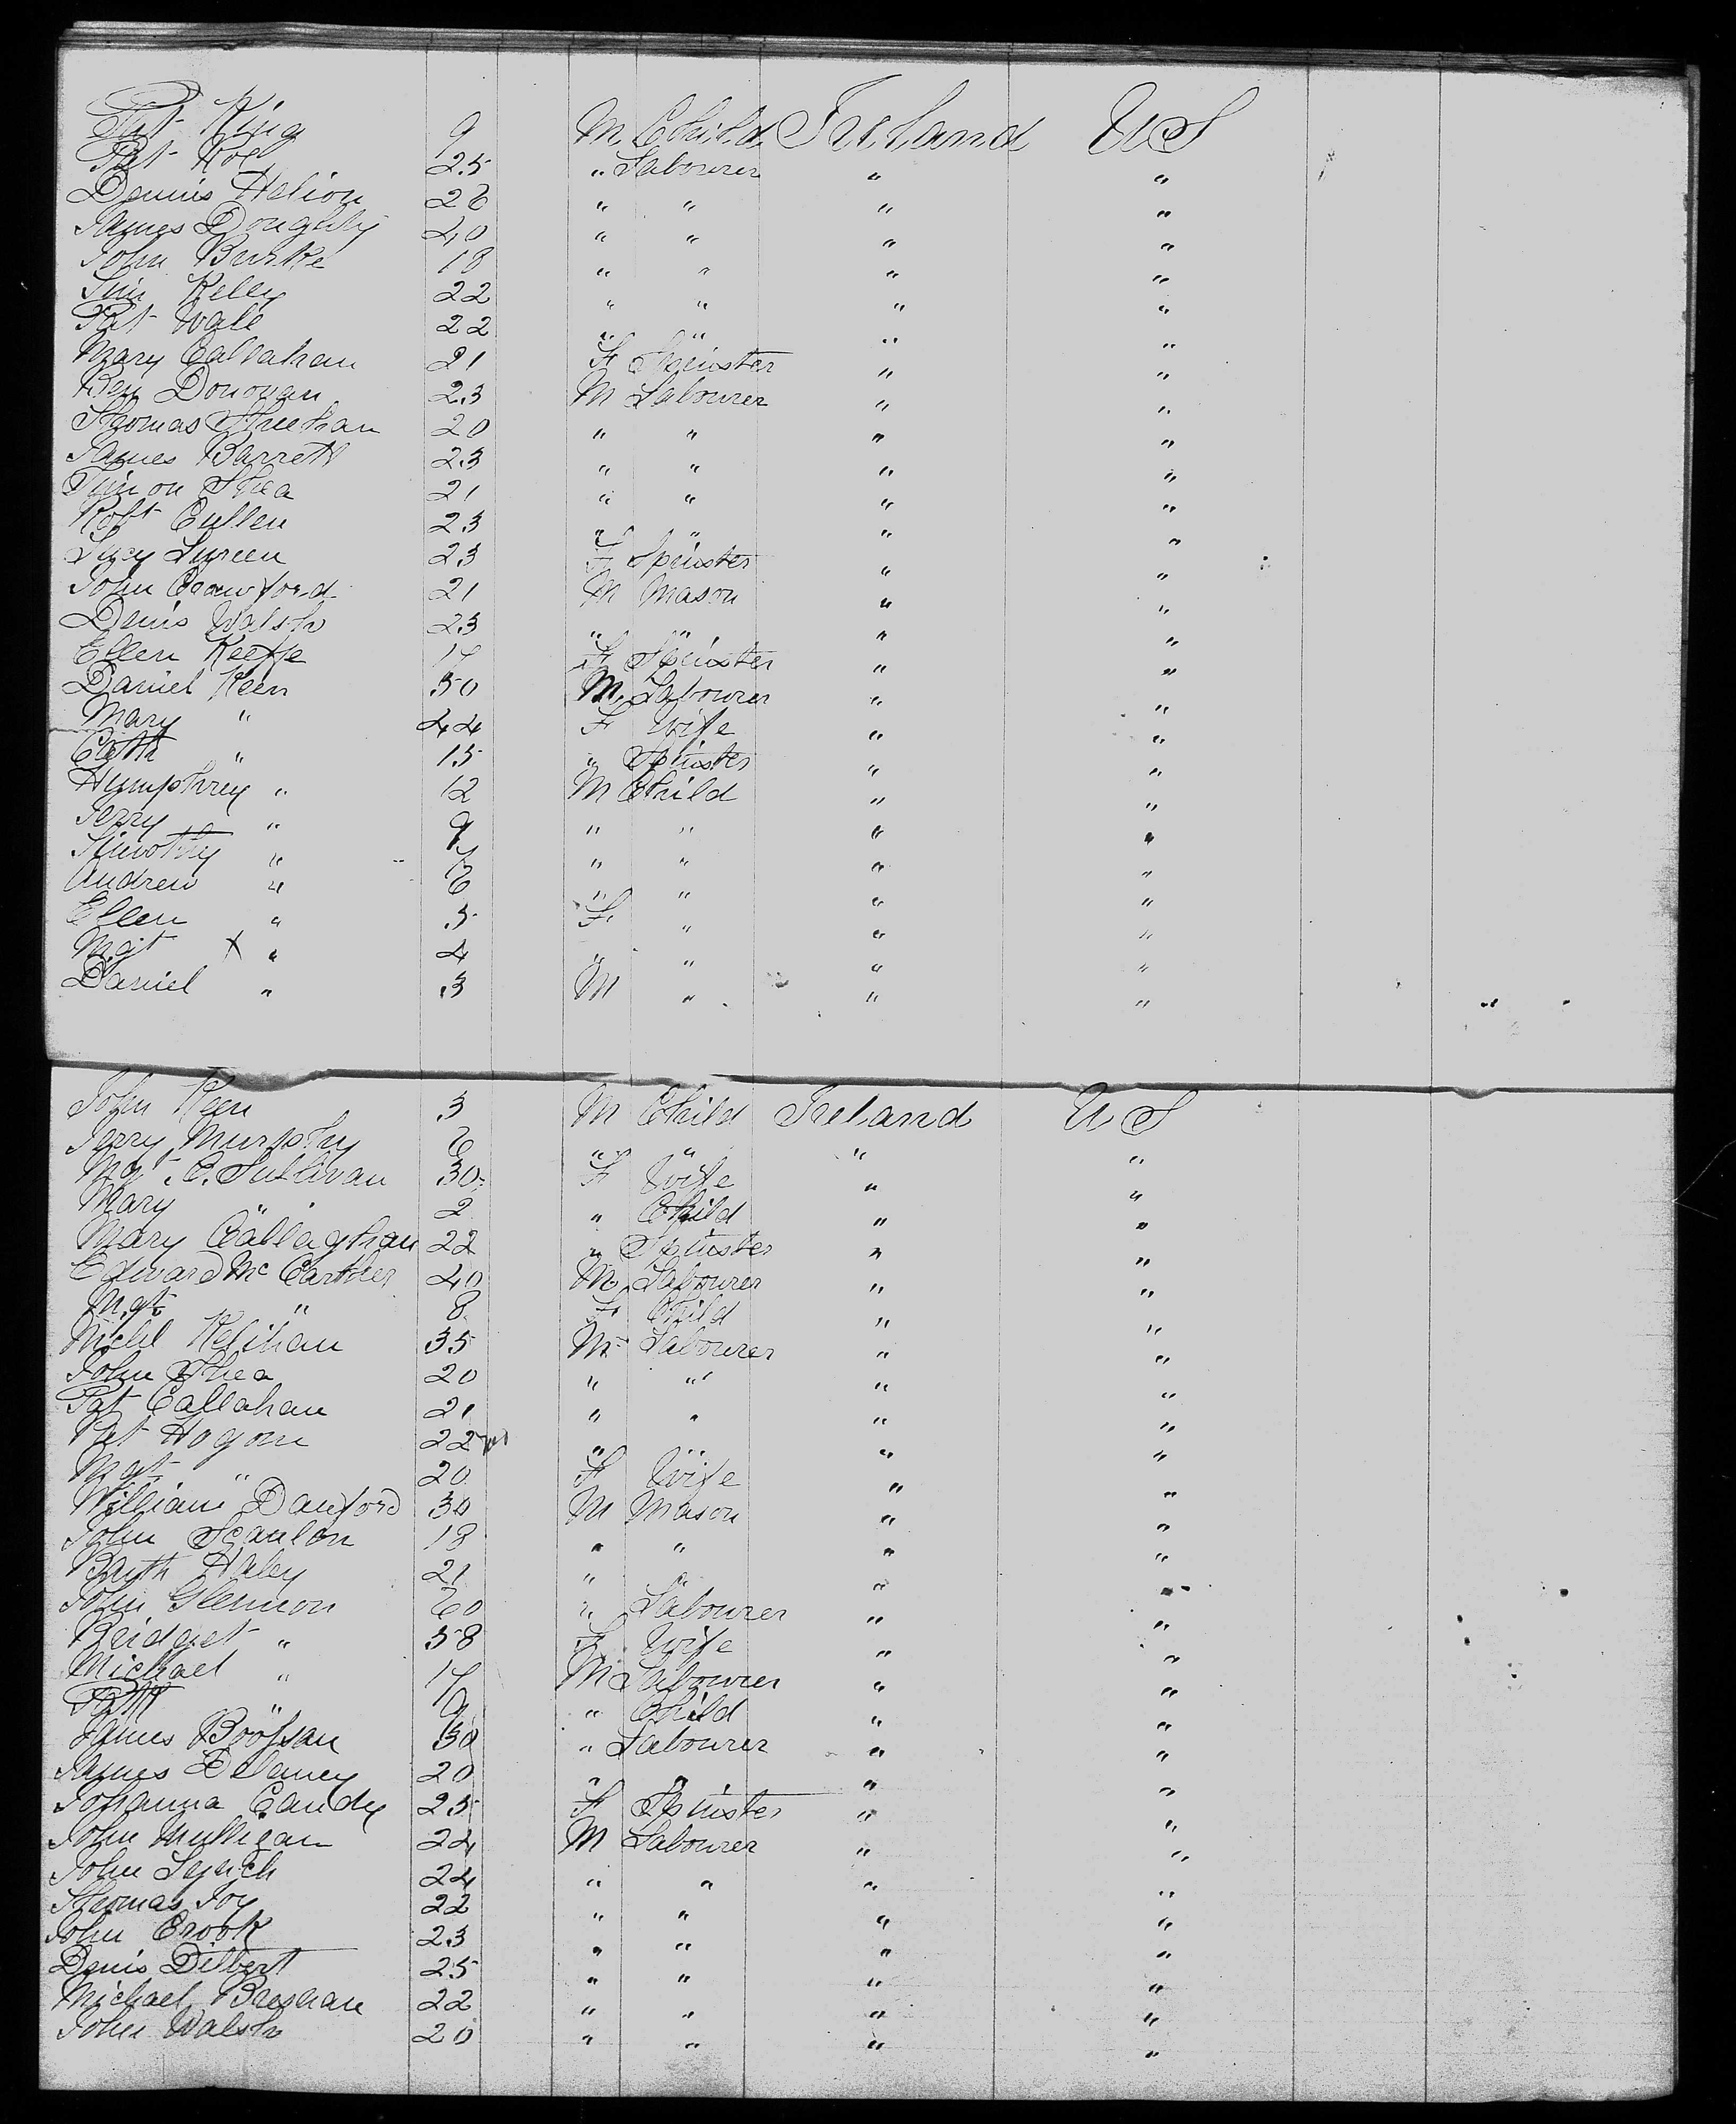 Pat King 9 M Child Ireland US
Pat Roe 25 " Labourer " "
Dennis Helion 26 " " " "
James Doughty 40 " " " "
John Burke 18 " " " "
Tim Kelly 22 " " " "
Pat Wall 22 " " " "
Mary Callahan 21 F Spinster " "
Ben Donovan 23 M Labourer " "
Thomas Sheehan 20 " " " "
James Barrett 23 " " " "
Timon Shea 21 " " " "
Robt Cullen 23 " " " "
Lucy 23 F Spinster " "
John Crawford 21 M Mason " "
Denis Walsh 23 " " " "
Ellen Keeffe 17 F Spinster " "
Daniel Keen 50 M Labourer " "
Mary " 44 F Wife " "
Cath " 15 " Spinster " "
Humphrey " 12 M Child " "
Jerry " 9 " " " "
Timothy " 7 " " " "
Andrew " 6 " " " "
Ellen " 5 F " " "
Mgt X " 4 " " " "
Daniel " 3 M " " "
John Keen 3 M Child Ireland US
Jerry Murphy 6 " " " "
Mgt C. Sullivan 30 F Wife " "
Mary " 2 " Child " "
Mary Callaghan 22 " Spinster " "
Edward McCarther 40 M Labourer " "
Mgt " 8 F Child " "
Michl Kelihan 35 M Labourer " "
John Shea 20 " " " "
Pat Callahan 21 " " " "
Pat Hogan 22 " " " "
Mgt " 20 F Wife " "
William Danford 30 M Mason " "
John Scanlon 18 " " " "
Barth Haley 21 " " " "
John Glennon 60 " Labourer " "
Bridget " 58 F Wife " "
Michael " 17 M Labourer " "
" 9 " Child " "
James 30 " Labourer " "
James Delaney 20 " " " "
Johanna Candy 25 F Spinster " "
John Mulligan 24 M Labourer " "
John Lynch 24 " " " "
Thomas Joy 22 " " " "
John Crook 23 " " " "
Denis Dilbert 25 " " " "
Michael Bresnan 22 " " " "
John Walsh 20 " " " "